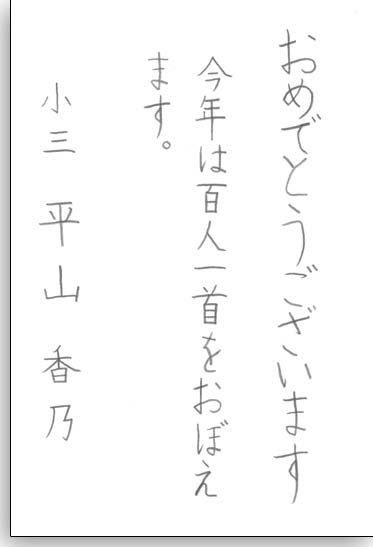 おめでとうございます
今年は百人一首をおぼえ
ます。
小三 平山 香乃